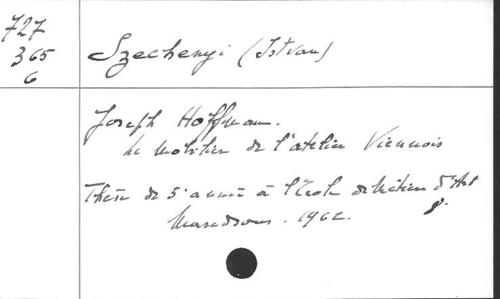 727
365
6
Szechenyi (Istvan)
Joseph Hoffman.
Le Mobilier de l'atelier Viennois
Thèse de 5e année à l'Ecole de Métiers d'Art
1962.